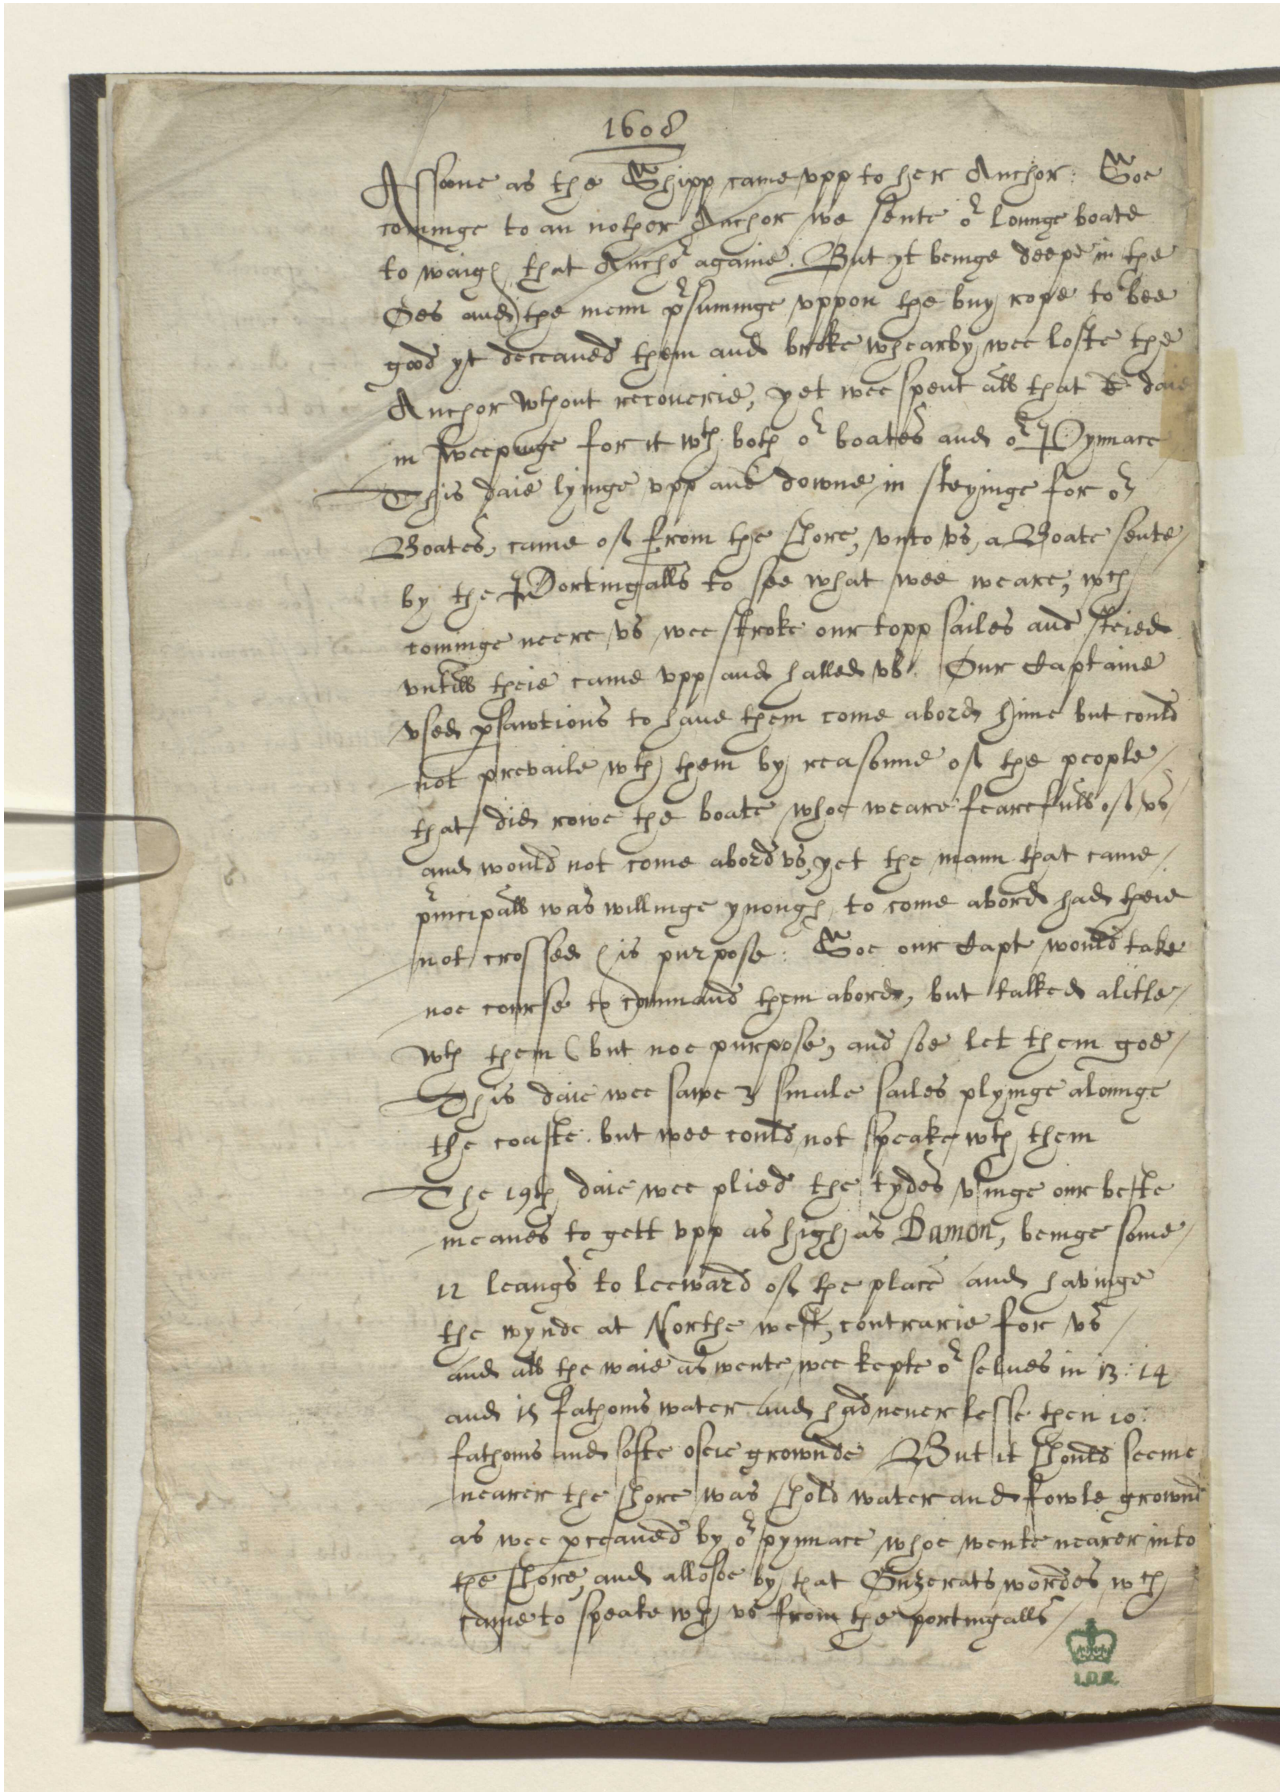 1608
Assoone as the Shipp came vpp to her Anchor: Soe
cominge to an nother Anchor we sente or lounge boate
to waigh that Anchor againe. But yt beinge deepe in the
Oes and the menn prsuminge vppon the buy rope to bee
good yt deceaued them and broke whearby wee loste the
Anchor wthout recouerie, yet wee spent all that daie
in sweepinge for it wth both or boates and or Pynnace
This daie lyinge vpp and downe in steyinge for or
Boates, came of from the shore, vnto vs, a Boate sente
by the Portingalls to see what wee weare, wch
cominge neere vs wee stroke our topp sailes and steied
vntill theie came vpp and halled vs. Our Captaine
vsed pswations to haue them come abord hime but could
not prevaile wth them by reasonne of the people
that did rowe the boate whoe weare fearefull of vs
and would not come abord vs, yet the mann that came
principall was willinge ynough to come abord had theie
not crossed his purpose: Soe our Capt would take
noe course to command them abord, but talked a litle
wth them but noe purpose, and soe let them goe
This daie wee sawe 3 smale sailes plyinge alounge
the coaste. but wee could not speake wth them
The 19th daie wee plied the tydes vsinge our beste
meanes to gett vpp as high as Damon, beinge some
12 leaugs to leeward of the place and havinge
the wynde at Northe west, contrarie for vs
and all the waie as wente wee kepte or selues in 13: 14
and 15 fathoms water and had neuer lesse then 10:
fathoms and softe osie grownde But it should seeme
nearer the shore was shold water and fowle grownd
as wee pceaued by or pynnace whoe wente nearer into
the shore, and allsoe by that Guzerats wordes wch
came to speake wth vs from the portingalls
I.O.R.